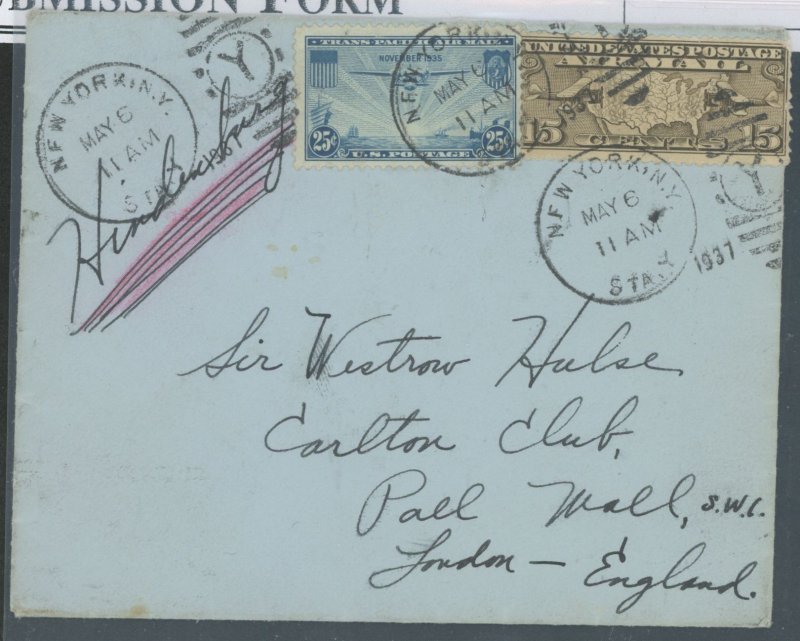 SUBMISSION FORM
NEW YORK, N.Y.
MAY 6
11 AM
STA. Y
1937
Y
Hindenburg
TRANS-PACIFIC AIR MAIL
NOVEMBER 1935
25¢ 25¢
U.S. POSTAGE
NEW YORK, N.Y.
MAY 6
11 AM
1937
UNITED STATES POSTAGE
AIR MAIL
15 CENTS 15
NEW YORK, N.Y.
MAY 6
11 AM
STA. Y
1937
Y
Sir Westrow Hulse
Carlton Club,
Pall Mall, S.W.1.
London — England.